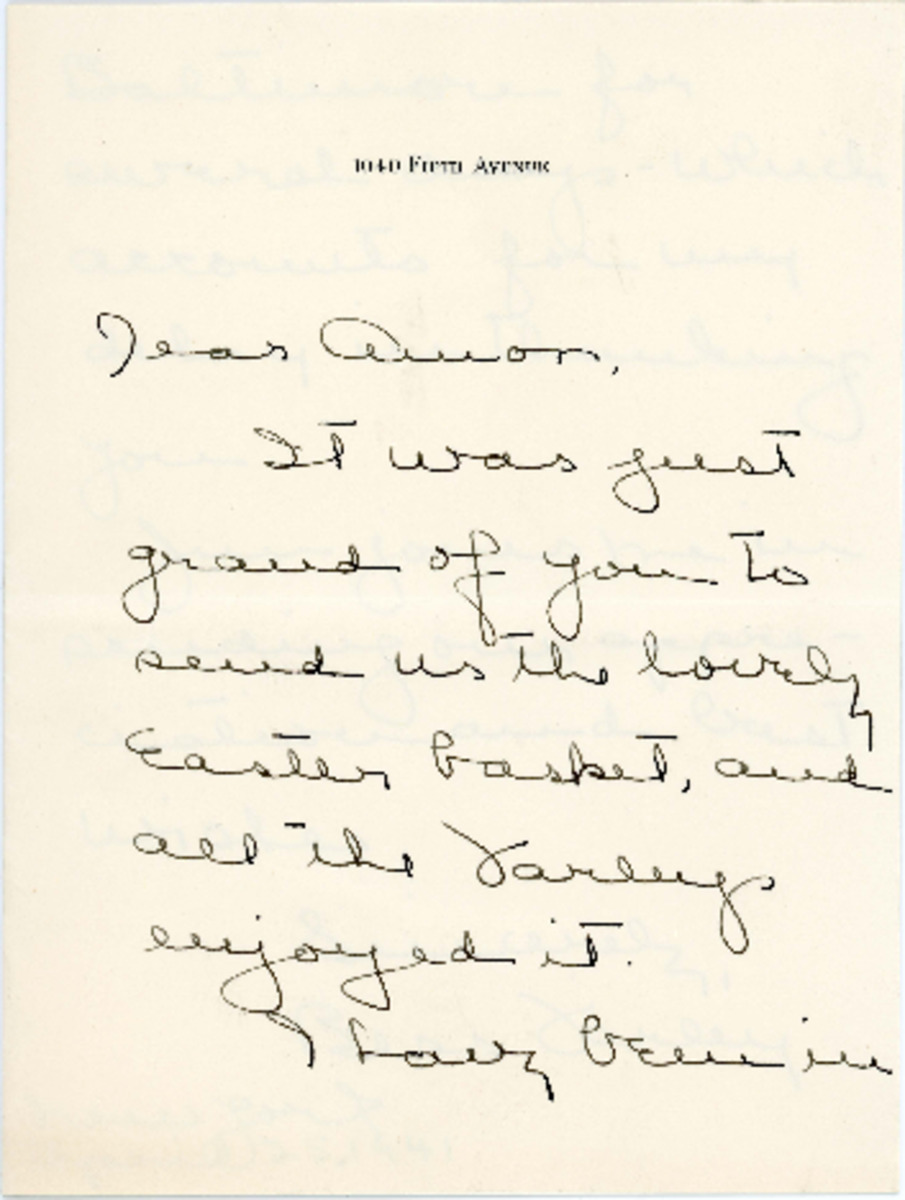 1040 FIFTH AVENUE
Dear Amon,
It was just
grand of you to
send us the lovely
Easter basket, and
all the Farleys
enjoyed it.
I have been in